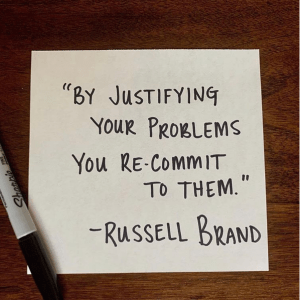 "BY JUSTIFYING
YOUR PROBLEMS
YOU RE-COMMIT
TO THEM."
-RUSSELL BRAND
Sharpie